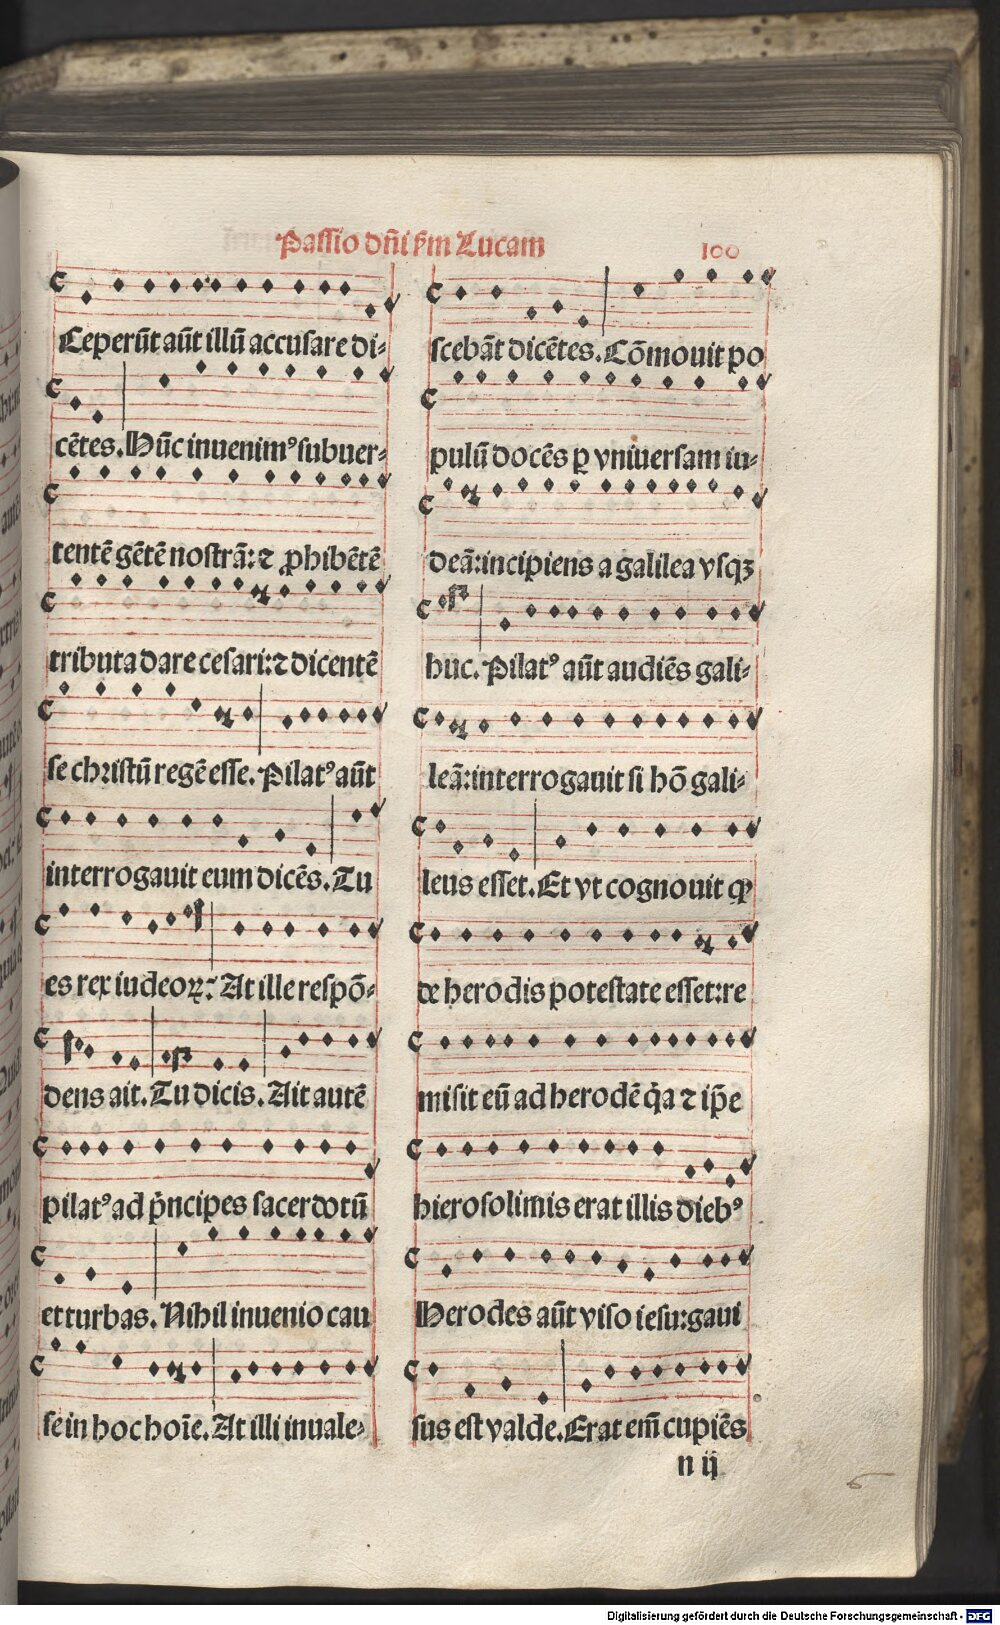 Passio dñi ẜm Lucam
100
Ceperũt aũt illũ accusare di⸗
cẽtes. Hũc inuenimꝰ subuer⸗
tentẽ gẽtẽ nostrã: ⁊ ꝓhibẽtẽ
tributa dare cesari: ⁊ dicentẽ
se christũ regẽ esse. Pilatꝰ aũt
interrogauit eum dicẽs. Tu
es rex iudeoꝝ: At ille respõ⸗
dens ait. Tu dicis. Ait autẽ
pilatꝰ ad pͥncipes sacerdotũ
et turbas. Nihil inuenio cau
se in hoc hoĩe. At illi inuale⸗
scebãt dicẽtes. Cõmouit po
pulũ docẽs ꝑ vniuersam iu⸗
deã: incipiens a galilea vsqꝫ
huc. Pilatꝰ aũt audiẽs gali⸗
leã: interrogauit si hõ gali⸗
leus esset. Et vt cognouit ꝙ
de herodis potestate esset: re
misit eũ ad herodẽ qͥa ⁊ ip̃e
hierosolimis erat illis diebꝰ
Herodes aũt viso iesu: gaui
sus est valde. Erat em̃ cupiẽs
n ij
6
Digitalisierung gefördert durch die Deutsche Forschungsgemeinschaft - DFG